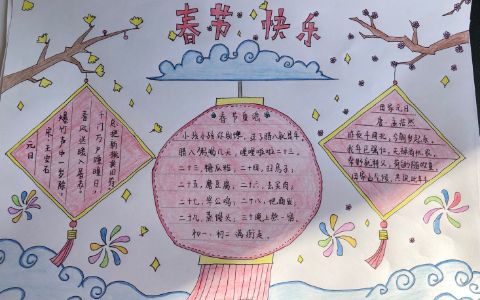 春节快乐
元日
宋·王安石
爆竹声中一岁除，
春风送暖入屠苏。
千门万户曈曈日，
总把新桃换旧符。
春节童谣
小孩小孩你别馋，过了腊八就是年。
腊八粥喝几天，哩哩啦啦二十三。
二十三，糖瓜粘，二十四，扫房子，
二十五，磨豆腐，二十六，去买肉，
二十七，宰公鸡，二十八，把面发，
二十九，蒸馒头，三十晚上熬一宿，
初一、初二满街走。
田家元日
唐·孟浩然
昨夜斗回北，今朝岁起东，
我年已强仕，无禄尚忧农。